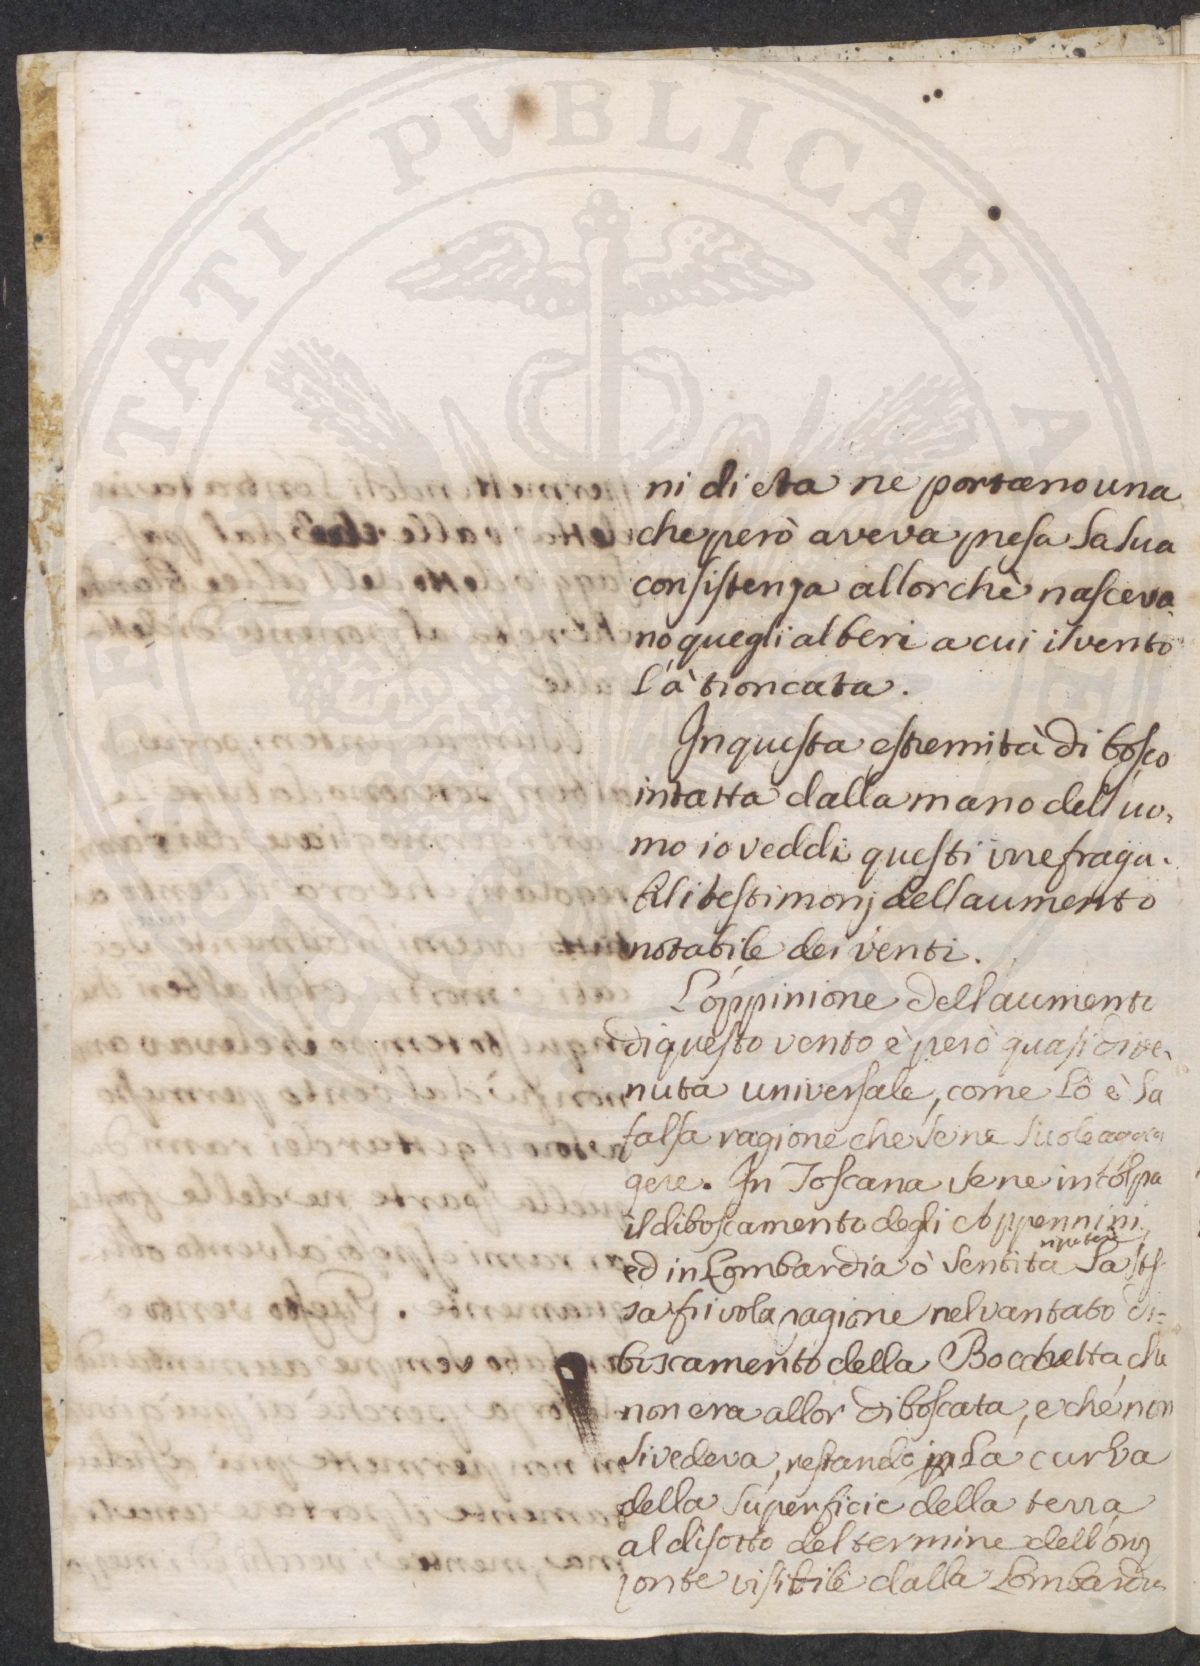 PROSPERITATI PUBLICAE AUGENDAE
ni di eta ne portano una
che però aveva presa la sua
consistenza allorchè nasceva
no quegli alberi a cui il vento
l'à troncata.
In questa estremità di bosco
intatta dalla mano dell'uo-
mo io veddi questi irrefraga-
bili testimonj dell'aumento
notabile dei venti.
L'oppinione dell'aumento
di questo vento è però quasi dive-
nuta universale, come lo è la
falsa ragione che se ne suole
gere. In Toscana se ne intolpa
il diboscamento degli Appennini,
ed in Lombardia ò sentita ripetere la stes
sa frivola ragione nel vantato di=
boscamento della Bocchetta, che
non era allor diboscata, e che non
si vedeva, restando la curva
della superficie della terra
al disotto del termine dell'oriz
zonte visibile dalla Lombardia